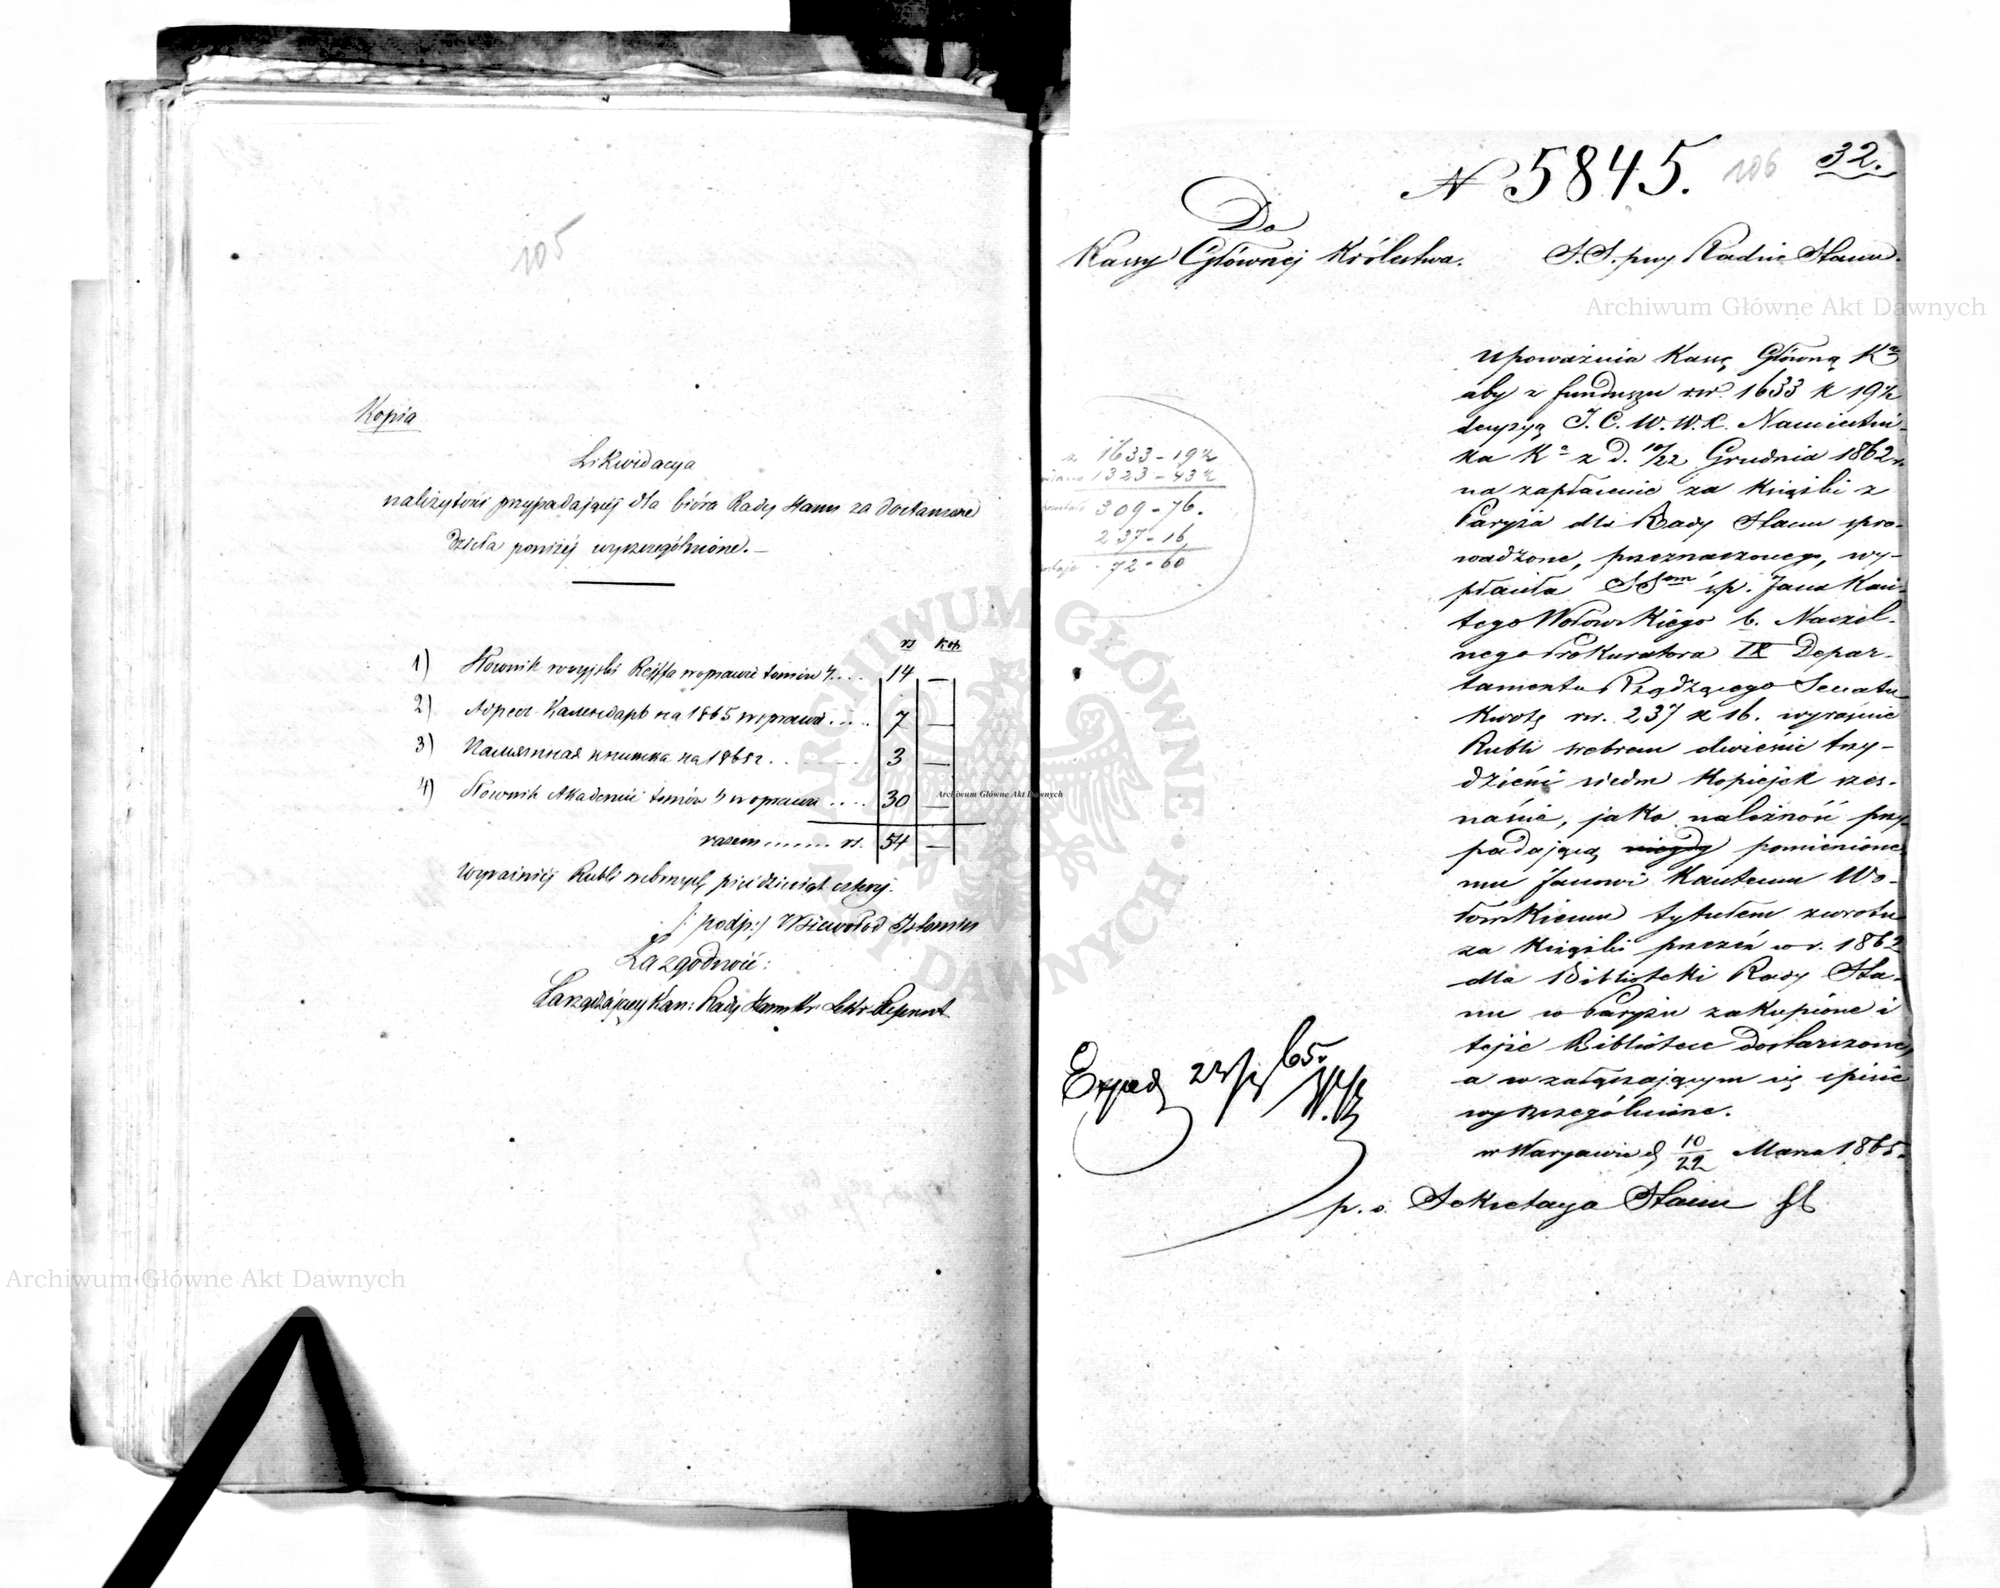 105
Kopia
Likwidacya
należytości przypadającej dla bióra Rady Stanu za dostawione
dzieła poniżej wyszczególnione.—
rs Kop.
1) Słownik rossyjski Reiffa w oprawie tomów 4.... 14 —
2) Адресъ-Календарь на 1865 w oprawie .... 7 —
3) Памятная книжка на 1865 г. ....... 3 —
4) Słownik Akademii tomów 4 w oprawie .... 30 —
razem ....... rs. 54 —
wyraźniej Rubli srebrnych pięćdziesiąt cztery.
/: podp:/ Wsiewołod Istomin
Za zgodność:
Zarządzający Kan: Rady Stanu Kr: Sekr:
N 5845. 106 32.
Do
Kassy Głównej Królestwa. S.S. przy Radzie Stanu.
upoważnia Kassę Główną Kᵃ
aby z funduszu rsr. 1633 k 19½
decyzyą J. C. W. W. X. Namiestni-
ka Kᵃ z d. 10/22 Grudnia 1862 r.
na zapłacenie za książki z
Paryża dla Rady Stanu spro-
wadzone, przeznaczonego, wy-
płaciła SSom śp. Jana Kan-
tego Wołowskiego b. Naczel-
nego Prokuratora IX Depar-
tamentu Rządzącego Senatu
Kwotę rsr. 237 k 16. wyraźnie
Rubli srebrem dwieście trzy-
dzieści siedm Kopiejek szes-
naście, jako należność przy-
padającą pomienione-
mu Janowi Kantemu Wo-
łowskiemu tytułem zwrotu
za książki przezeń w r. 1862
dla Biblioteki Rady Sta-
nu w Paryżu zakupione i
tejże Bibliotece dostarczone,
a w załączającym się spisie
wyszczególnione.
w Warszawie d. 10/22 Marca 1865.
p. o. Sekretarza Stanu
z 1633 - 19½
1323 - 43½
309 - 76.
237 - 16
72 - 60
Exped 23/3 65.
Archiwum Główne Akt Dawnych
Archiwum Główne Akt Dawnych
Archiwum Główne Akt Dawnych
ARCHIWUM GŁÓWNE AKT DAWNYCH